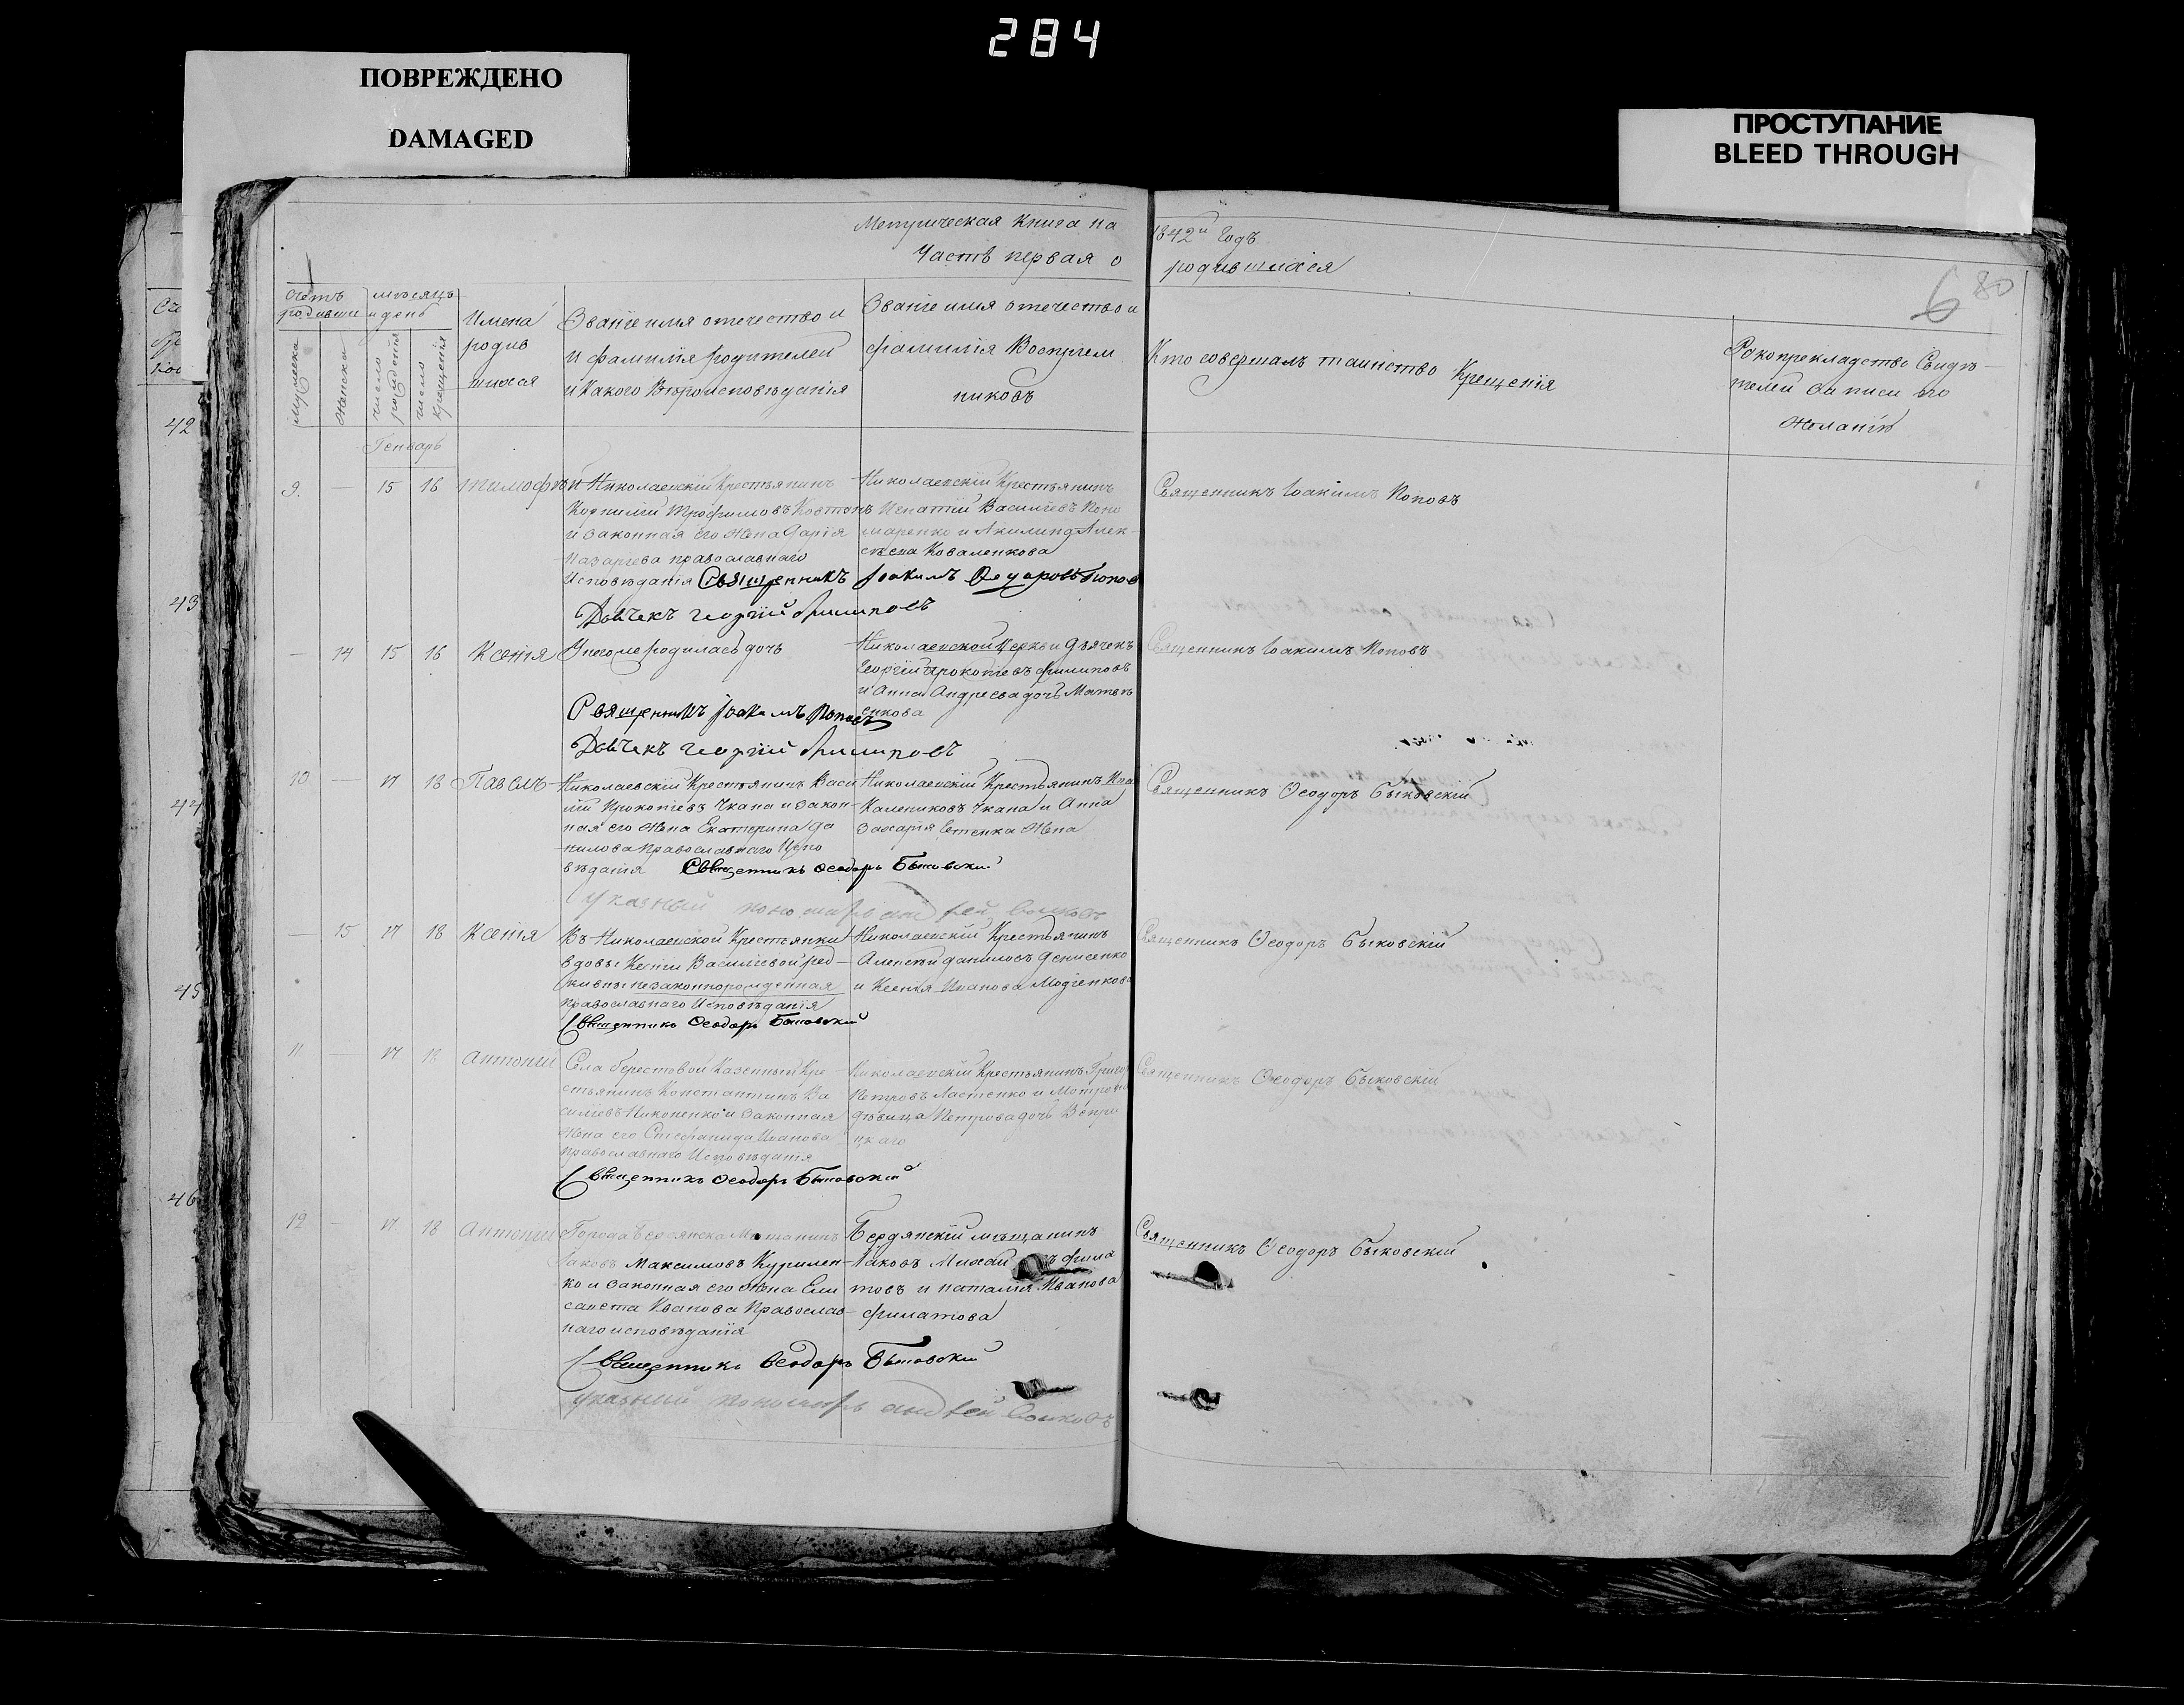 284
ПОВРЕЖДЕНО
DAMAGED
ПРОСТУПАНИЕ
BLEED THROUGH
Метрическая книга на 1842й годъ
Часть первая о родившихся
6 80
Счетъ родивши
мѣсяцъ и день
мужеска
женска
число рожденія
число крещенія
Имена
родив
шихся
Званіе имя отечество и
и фамилія родителей
и какого вѣроисповѣданія
Званіе имя отечество и
фамилія Воспріем
никовъ
Кто совершалъ таинство Крещенія
Рукоприкладство Свидѣ
телей записи по
желанію
Генварь
42
43
44
45
46
9. — 15 16 Тимофѣй
Николаевскій Крестьянинъ
Корнилій Трофимовъ
и законная его жена Дарія
Назаріева православнаго
исповѣданія Священникъ Іоакимъ Поповъ
Дьячекъ Георгій Филиповъ
Николаевскій Крестьянинъ
Игнатій Васильевъ Поно
маренко и Акилина Алек
сѣева Коваленкова
Священникъ Іоакимъ Поповъ
— 14 15 16 Ксенія
У него же родилась дочь
Священникъ Іоакимъ Поповъ
Дьячекъ Георгій Филиповъ
Николаевской Церкви Дьячекъ
Георгій Прокопіевъ Филиповъ
и Анна Андреева дочь Матвѣ
енкова
Священникъ Іоакимъ Поповъ
10 — 17 18 Павелъ
Николаевскій Крестьянинъ Васи
лій Прокопіевъ Чкана и закон
ная его жена Екатерина Да
нилова православнаго Испо
вѣданія Священникъ Ѳеодоръ Быковскій
Указный пономарь Андрей Волковъ
Николаевскій Крестьянинъ
Калениковъ Чкана и Анна
Захарія Евтенка жена
Священникъ Ѳеодоръ Быковскій
— 15 17 18 Ксенія
Въ Николаевской Крестьянки
вдовы Ксеніи Васильевой
незаконнорожденная
православнаго Исповѣданія
Священникъ Ѳеодоръ Быковскій
Николаевскій Крестьянинъ
Алексѣй Даниловъ Денисенко
и Ксенія Иванова
Священникъ Ѳеодоръ Быковскій
11 — 17 18 Антоній
Села берестовой Казенный Кре
стьянинъ Константинъ Ва
силіевъ Никоненко и законная
жена его Стефанида Иванова
православнаго Исповѣданія
Священникъ Ѳеодоръ Быковскій
Николаевскій Крестьянинъ Григор
Петровъ Ластенко и Мотрона
дѣвица Петрова дочь
Священникъ Ѳеодоръ Быковскій
12 — 17 18 Антоній
Города Бердянска Мѣщанинъ
Іаковъ Максимовъ Курилен
ко и законная его жена Ели
савета Иванова Православ
наго исповѣданія
Священникъ Ѳеодоръ Быковскій
Указный пономарь Андрей Волковъ
Бердянскій мѣщанинъ
Іаковъ Михай въ фила
товъ и наталія Иванова
филатова
Священникъ Ѳеодоръ Быковскій